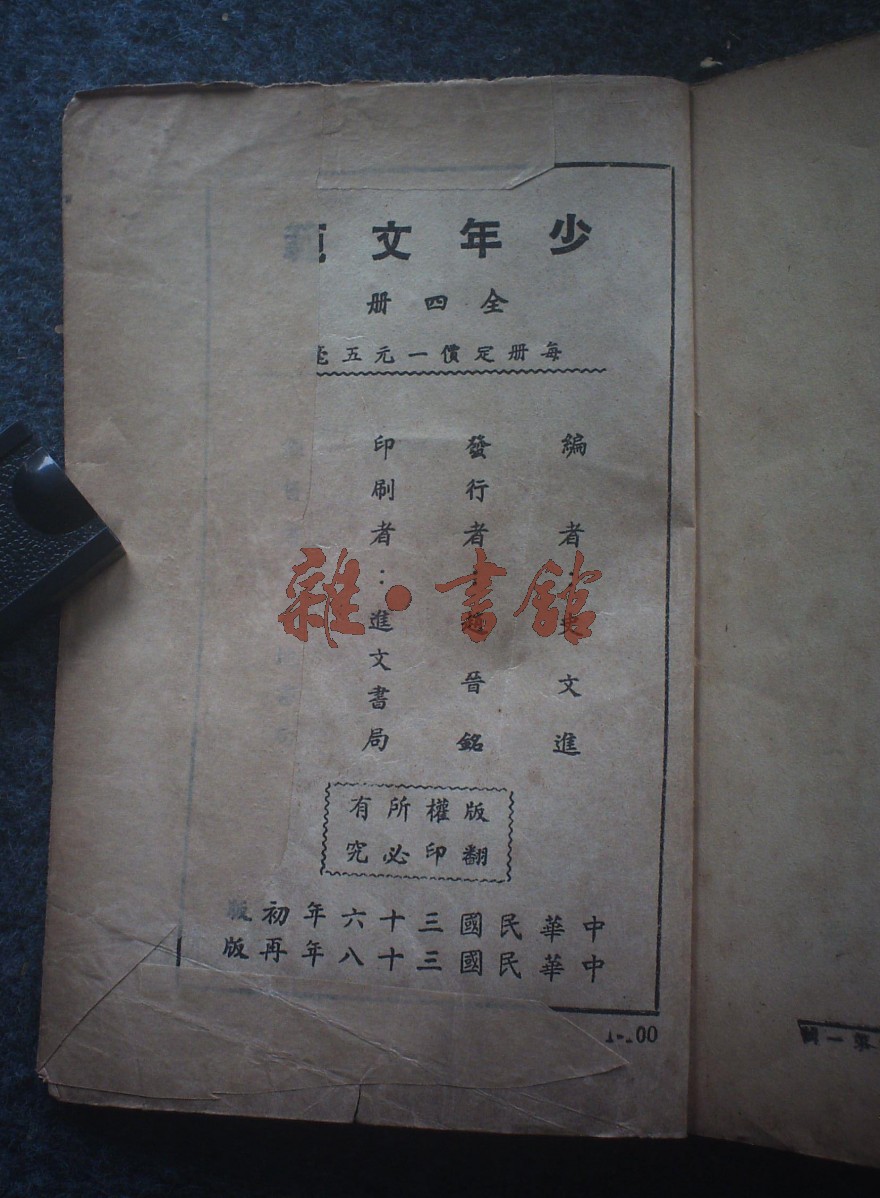 少年文範
全四册
每册定價一元五毫
編者：文進
發行者：趙晉銘
印刷者：進文書局
雜·書館
版權所有
翻印必究
中華民國三十六年初版
中華民國三十八年再版